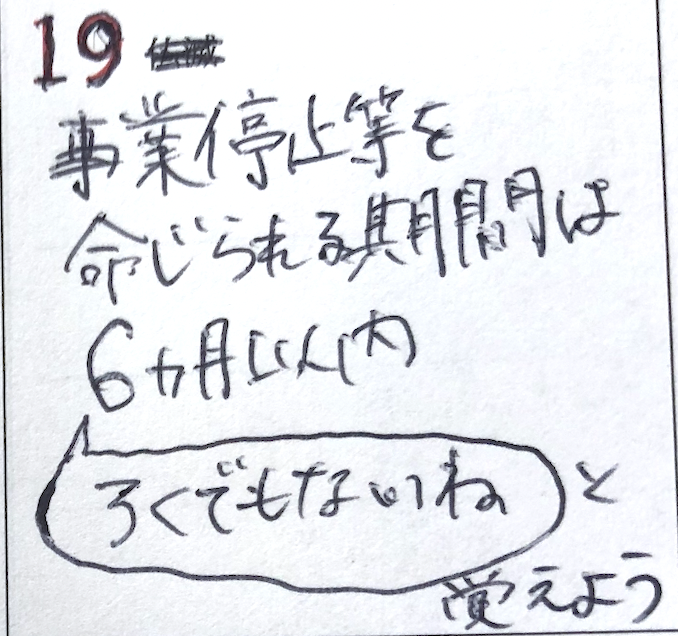 19
事業停止等を
命じられる期間は
6ヵ月以内
ろくでもないね と
覚えよう